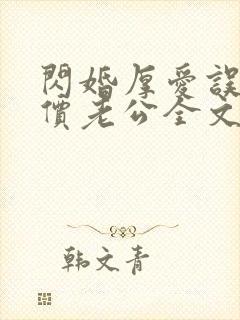 閃婚厚愛誤
價老公全文
韩文青